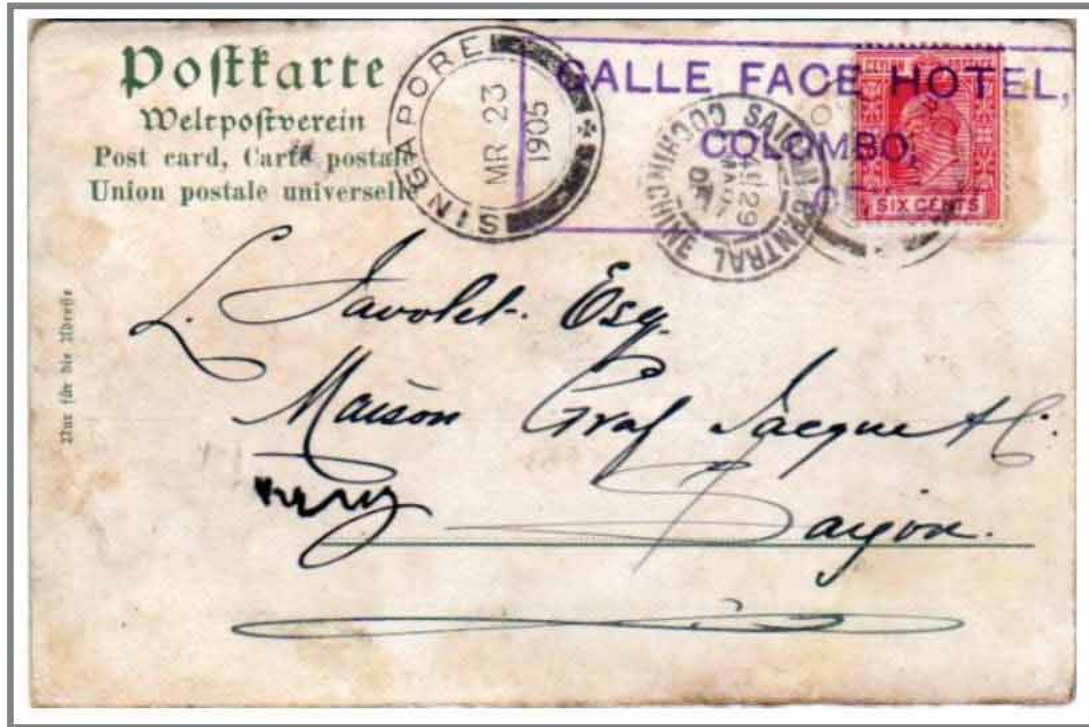 Postkarte
Weltpostverein
Post card, Carte postale
Union postale universelle
Nur für die Adresse
SINGAPORE
MR 23
1905
GALLE FACE HOTEL,
COLOMBO,
SAIGON CENTRAL
COCHINCHINE
29
SIX CENTS
L. Javolet. Esq.
Maison Graf Jacque & C.
Saigon.